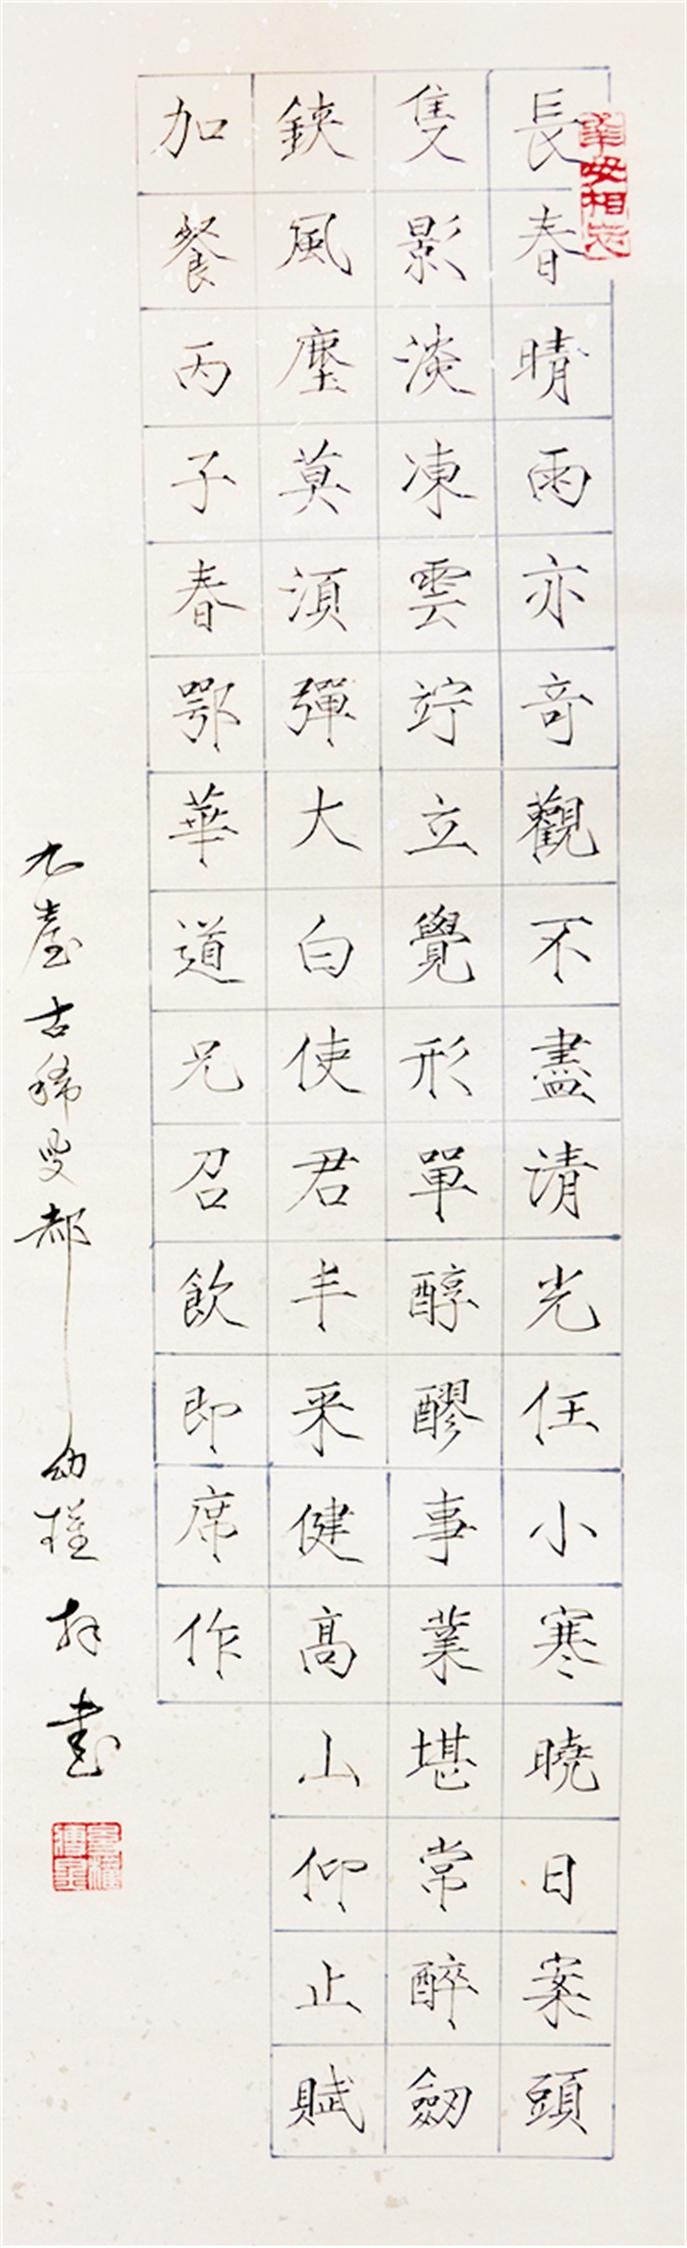 幸毋相忘
長春晴雨亦奇觀不盡清光任小寒曉日案頭
隻影淡凍雲竚立覺形單醇醪事業堪常醉劒
鋏風塵莫須彈大白使君丰采健高山仰止賦
加餐丙子春鄂華道兄召飲即席作
九臺古稀叟都幼權拜書